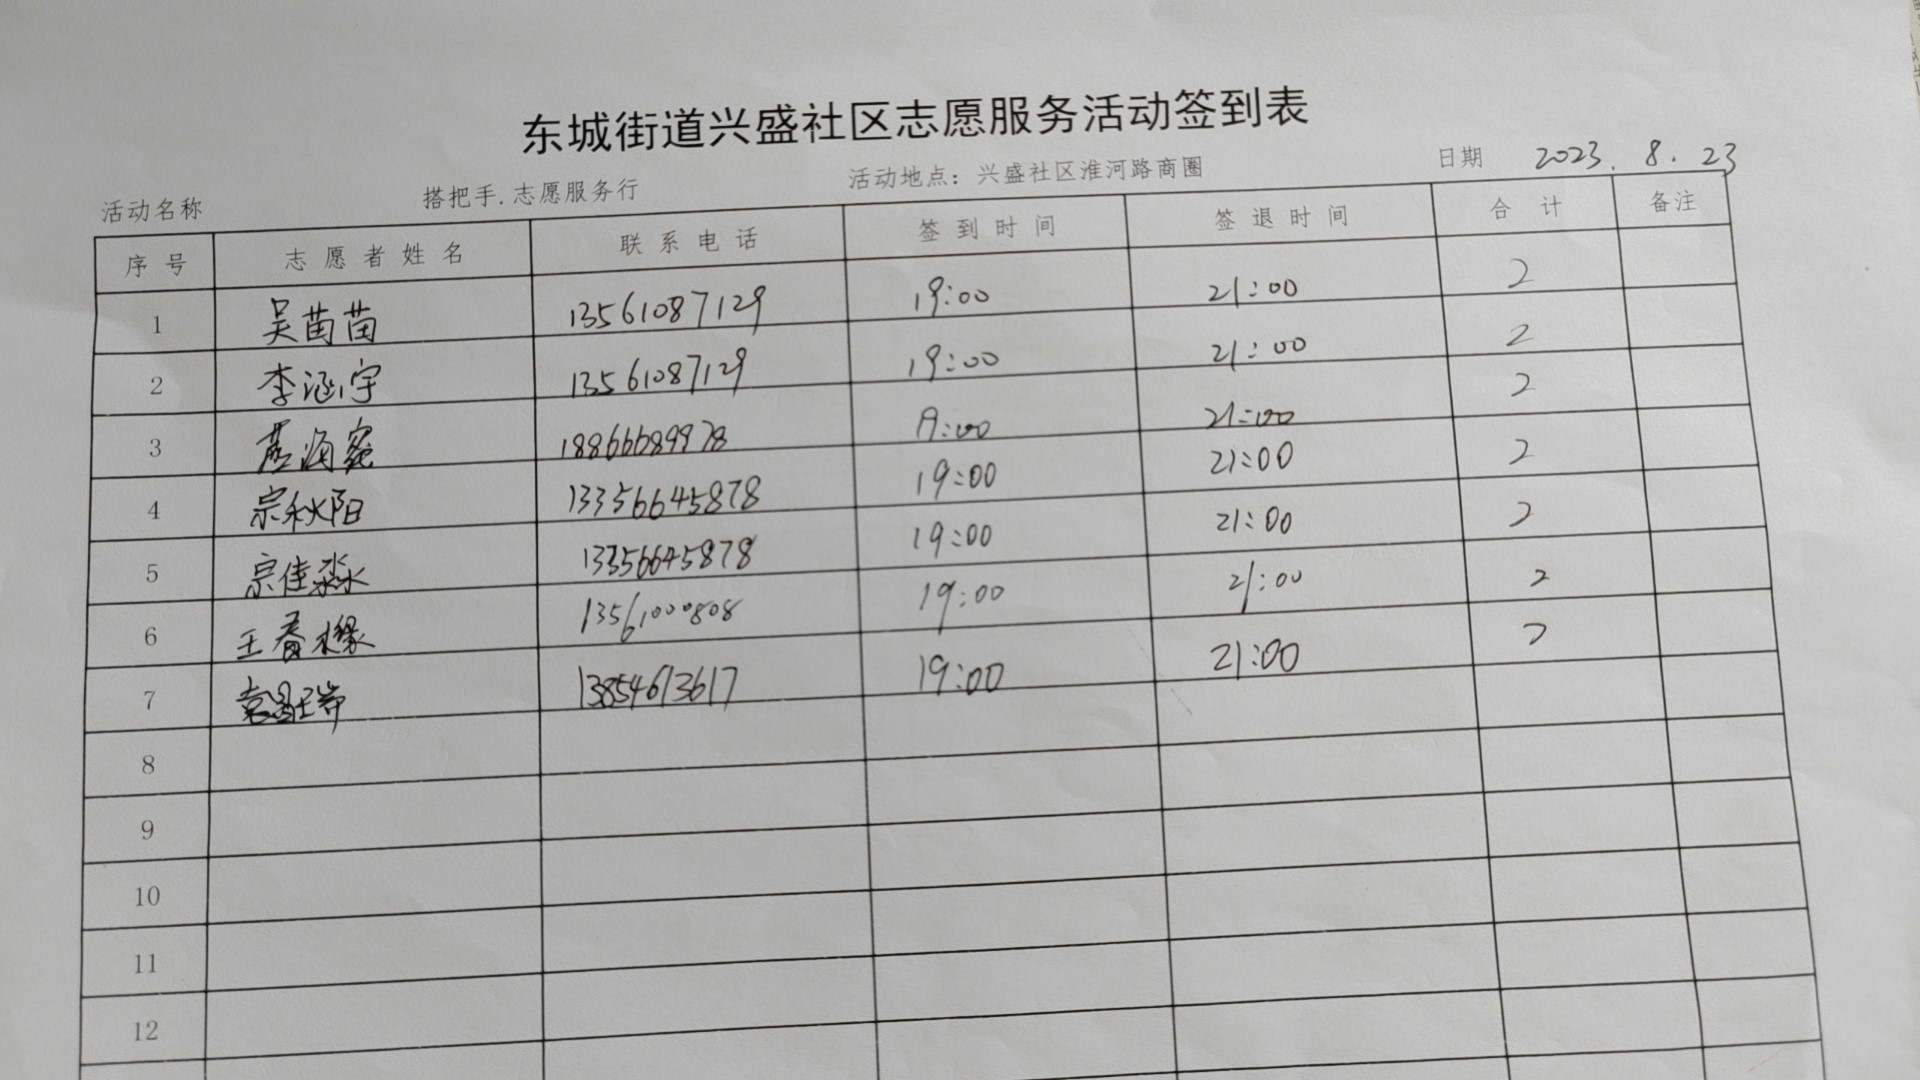 东城街道兴盛社区志愿服务活动签到表
活动名称 搭把手.志愿服务行 活动地点：兴盛社区淮河路商圈 日期 2023.8.23
序号 志愿者姓名 联系电话 签到时间 签退时间 合计 备注
1 吴苗苗 13561087129 19:00 21:00 2
2 李涵宇 13561087129 19:00 21:00 2
3 18866689978 19:00 21:00 2
4 宗秋阳 13356645878 19:00 21:00 2
5 宗佳淼 13356645878 19:00 21:00 2
6 王春 13561000808 19:00 21:00 2
7 13854613617 19:00 21:00 2
8
9
10
11
12